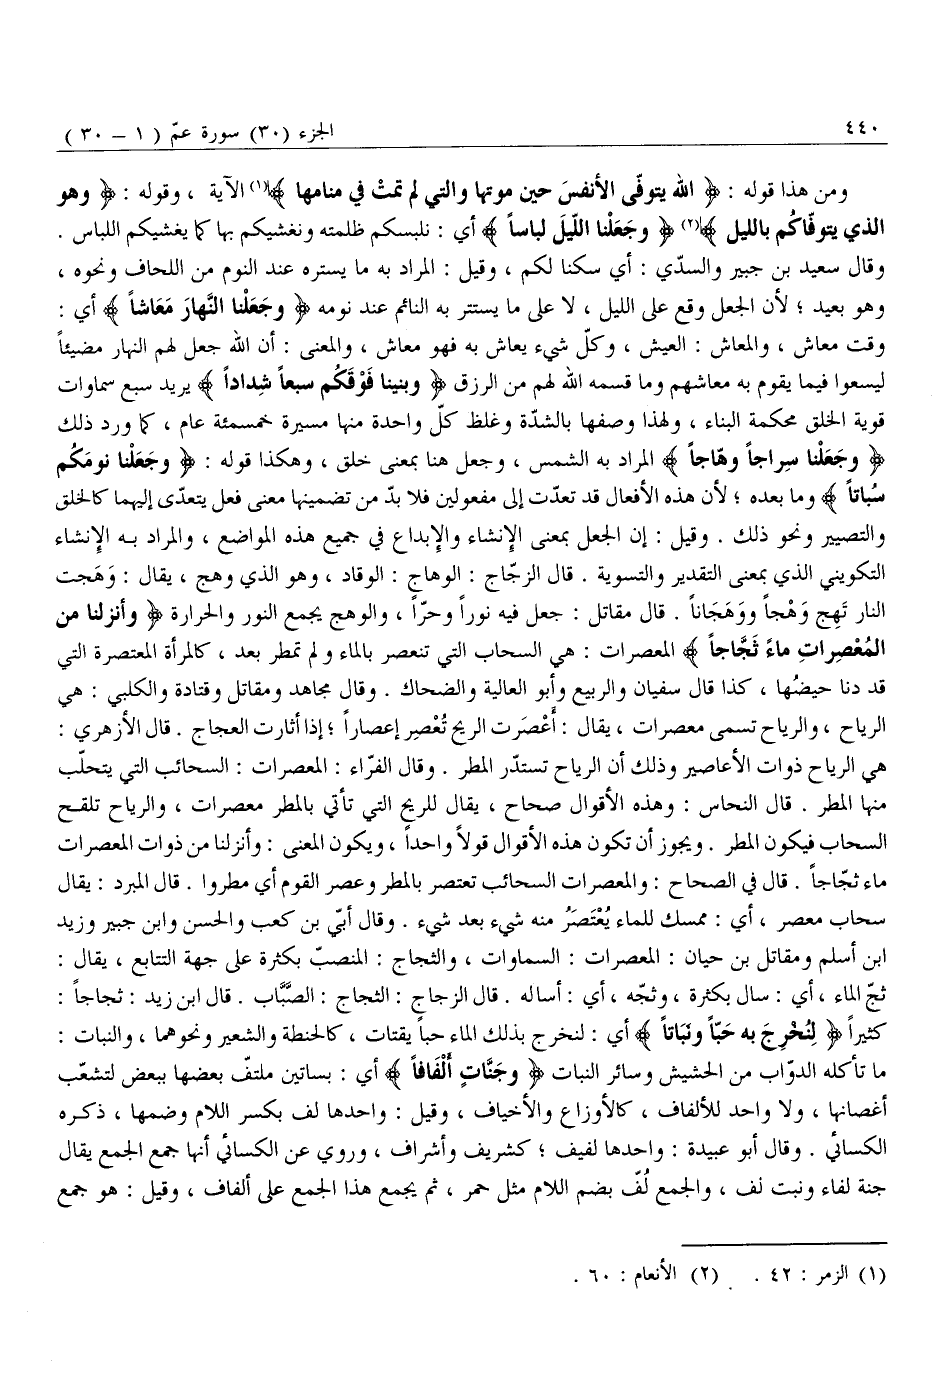 ٤٤٠ الجزء (٣٠) سورة عمّ ( ١ – ٣٠ )
ومن هذا قوله : ﴿ الله يتوفّى الأنفسَ حين موتها والتي لم تمتْ في منامها ﴾(١) الآية ، وقوله : ﴿ وهو
الذي يتوفّاكُم بالليل ﴾(٢) ﴿ وجَعَلْنا اللّيلَ لباساً ﴾ أي : نلبسكم ظلمته ونغشيكم بها كما يغشيكم اللباس .
وقال سعيد بن جبير والسدّي : أي سكنا لكم ، وقيل : المراد به ما يستره عند النوم من اللحاف ونحوه ،
وهو بعيد ؛ لأن الجعل وقع على الليل ، لا على ما يستتر به النائم عند نومه ﴿ وجَعَلْنا النَّهارَ مَعَاشاً ﴾ أي :
وقت معاش ، والمعاش : العيش ، وكلّ شيء يعاش به فهو معاش ، والمعنى : أن الله جعل لهم النهار مضيئاً
ليسعوا فيما يقوم به معاشهم وما قسمه الله لهم من الرزق ﴿ وبنينا فَوْقَكُم سبعاً شِداداً ﴾ يريد سبع سماوات
قوية الخلق محكمة البناء ، ولهذا وصفها بالشدّة وغلظ كلّ واحدة منها مسيرة خمسمئة عام ، كما ورد ذلك
﴿ وجَعَلْنا سِراجاً وهّاجاً ﴾ المراد به الشمس ، وجعل هنا بمعنى خلق ، وهكذا قوله : ﴿ وجَعَلْنا نومَكُم
سُباتاً ﴾ وما بعده ؛ لأن هذه الأفعال قد تعدّت إلى مفعولين فلا بدّ من تضمينها معنى فعل يتعدّى إليهما كالخلق
والتصيير ونحو ذلك . وقيل : إن الجعل بمعنى الإنشاء والإبداع في جميع هذه المواضع ، والمراد بـه الإنشاء
التكويني الذي بمعنى التقدير والتسوية . قال الزجّاج : الوهاج : الوقاد ، وهو الذي وهج ، يقال : وَهَجت
النار تَهِج وَهْجاً ووَهَجَاناً . قال مقاتل : جعل فيه نوراً وحرّاً ، والوهج يجمع النور والحرارة ﴿ وأنزلنا من
المُعْصِراتِ ماءً ثَجَّاجاً ﴾ المعصرات : هي السحاب التي تنعصر بالماء ولم تمطر بعد ، كالمرأة المعتصرة التي
قد دنا حيضُها ، كذا قال سفيان والربيع وأبو العالية والضحاك . وقال مجاهد ومقاتل وقتادة والكلبي : هي
الرياح ، والرياح تسمى معصرات ، يقال : أَعْصَرت الريح تُعْصِر إعصاراً ؛ إذا أثارت العجاج . قال الأزهري :
هي الرياح ذوات الأعاصير وذلك أن الرياح تستدّر المطر . وقال الفرّاء : المعصرات : السحائب التي يتحلّب
منها المطر . قال النحاس : وهذه الأقوال صحاح ، يقال للريح التي تأتي بالمطر معصرات ، والرياح تلقـح
السحاب فيكون المطر . ويجوز أن تكون هذه الأقوال قولاً واحداً ، ويكون المعنى : وأنزلنا من ذوات المعصرات
ماء ثجّاجاً . قال في الصحاح : والمعصرات السحائب تعتصر بالمطر وعصر القوم أي مطروا . قال المبرد : يقال
سحاب معصر ، أي : ممسك للماء يُعْتَصَرُ منه شيء بعد شيء . وقال أبيّ بن كعب والحسن وابن جبير وزيد
ابن أسلم ومقاتل بن حيان : المعصرات : السماوات ، والثجاج : المنصبّ بكثرة على جهة التتابع ، يقال :
ثجّ الماء ، أي : سال بكثرة ، وثجّه ، أي : أساله . قال الزجاج : الثجاج : الصَّبَّاب . قال ابن زيد : ثجاجاً :
كثيراً ﴿ لِنُخْرِجَ به حَبّاً ونبَاتاً ﴾ أي : لنخرج بذلك الماء حباً يقتات ، كالحنطة والشعير ونحوهما ، والنبات :
ما تأكله الدوّاب من الحشيش وسائر النبات ﴿ وجَنَّاتٍ أَلْفَافاً ﴾ أي : بساتين ملتفّ بعضها ببعض لتشعّب
أغصانها ، ولا واحد للألفاف ، كالأوزاع والأخياف ، وقيل : واحدها لف بكسر اللام وضمها ، ذكره
الكسائي . وقال أبو عبيدة : واحدها لفيف ؛ كشريف وأشراف ، وروي عن الكسائي أنها جمع الجمع يقال
جنة لفاء ونبت لف ، والجمع لُفّ بضم اللام مثل حمر ، ثم يجمع هذا الجمع على ألفاف ، وقيل : هو جمع
(١) الزمر : ٤٢ . (٢) الأنعام : ٦٠ .